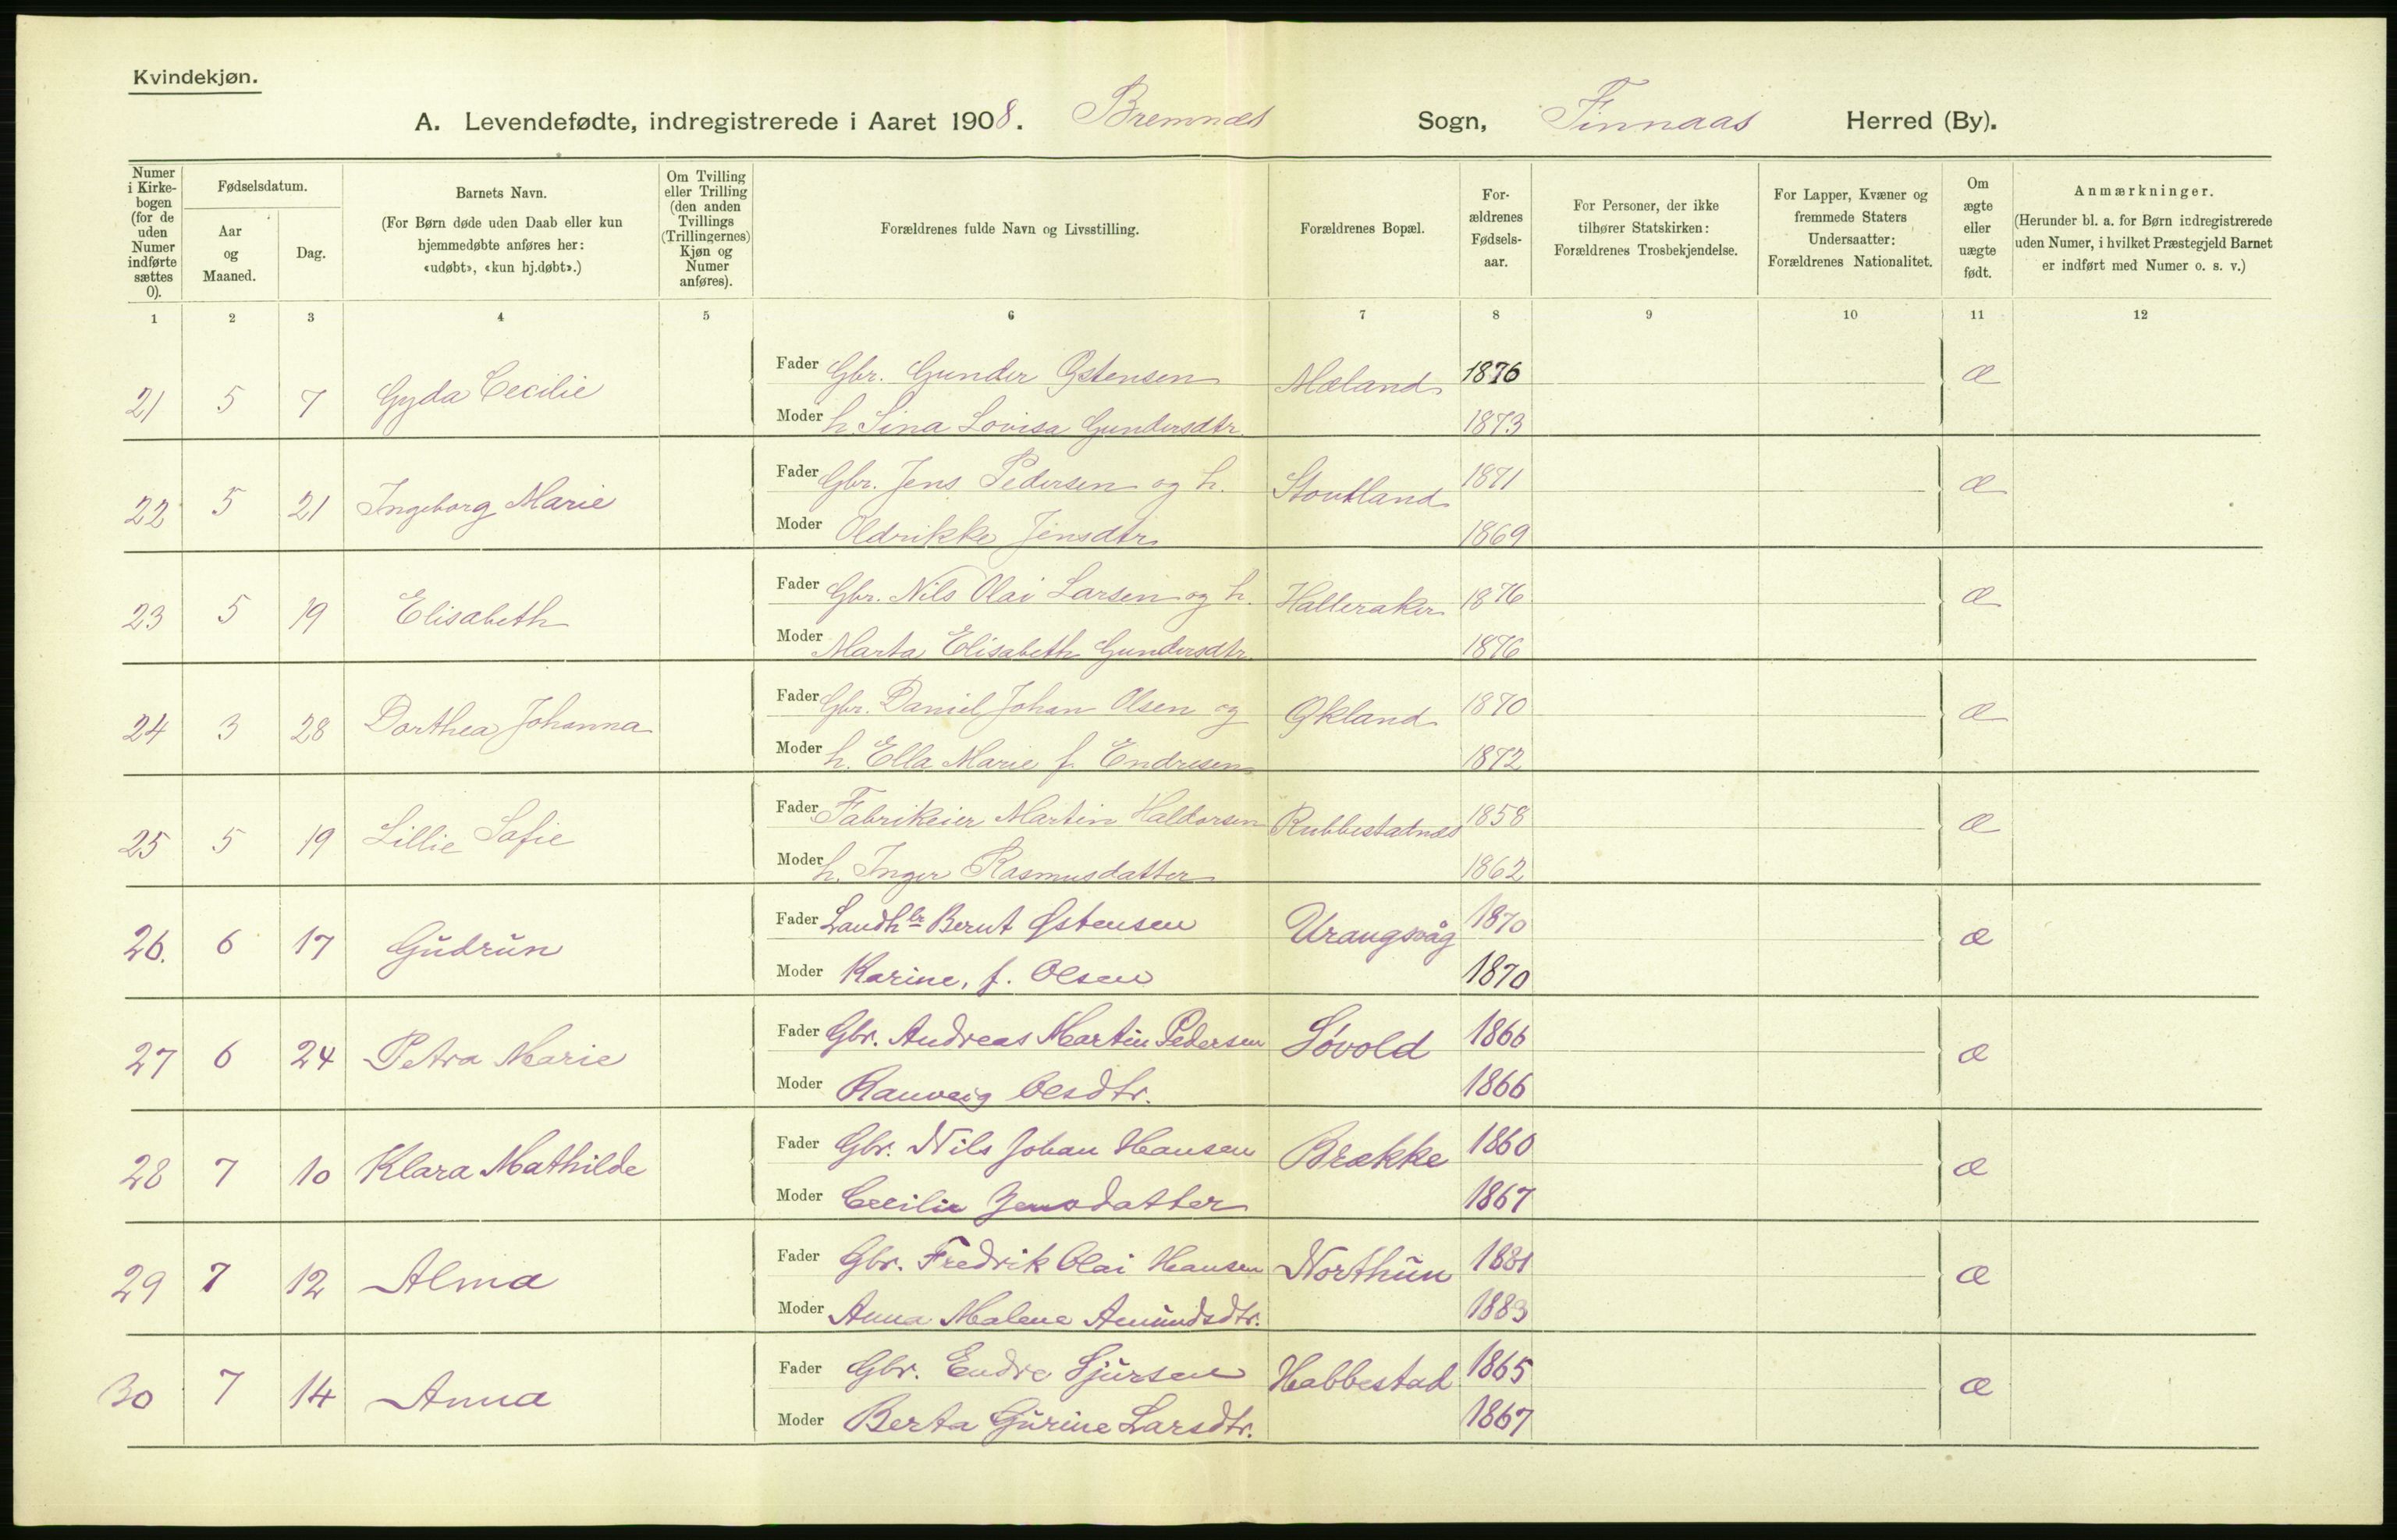 Kvindekjøn.
A. Levendefødte, indregistrerede i Aaret 1908. Bremnæs Sogn, Finnaas Herred (By).
Numer i Kirkebogen (for de uden Numer indførte sættes 0).
Fødselsdatum.
Aar og Maaned.
Dag.
Barnets Navn.
(For Børn døde uden Daab eller kun hjemmedøbte anføres her: «udøbt», «kun hj.døbt».)
Om Tvilling eller Trilling (den anden Tvillings (Trillingernes) Kjøn og Numer anføres).
Forældrenes fulde Navn og Livsstilling.
Forældrenes Bopæl.
Forældrenes Fødselsaar.
For Personer, der ikke tilhører Statskirken: Forældrenes Trosbekjendelse.
For Lapper, Kvæner og fremmede Staters Undersaatter: Forældrenes Nationalitet.
Om ægte eller uægte født.
Anmærkninger.
(Herunder bl. a. for Børn indregistrerede uden Numer, i hvilket Præstegjeld Barnet er indført med Numer o. s. v.)
1 2 3 4 5 6 7 8 9 10 11 12
21 5 7 Gyda Cecilie Fader Gbr. Gunder Østensen Mæland 1876 æ
Moder h. Sina Lovisa Gundersdtr. 1873
22 5 21 Ingeborg Marie Fader Gbr. Jens Pedersen og h. Stoutland 1871 æ
Moder Oldrikke Jensdtr. 1869
23 5 19 Elisabeth Fader Gbr. Nils Olai Larsen og h. Halleraker 1876 æ
Moder Marta Elisabeth Gundersdtr. 1876
24 3 28 Dorthea Johanna Fader Gbr. Daniel Johan Olsen og Økland 1870 æ
Moder h. Ella Marie f. Endresen 1872
25 5 19 Lillie Sofie Fader Fabrikeier Martin Haldorsen Rubbestadnæs 1858 æ
Moder h. Inger Rasmusdatter 1862
26. 6 17 Gudrun Fader Landhlr Bernt Østensen Urangsvåg 1870 æ
Moder Karine, f. Olsen 1870
27 6 24 Petra Marie Fader Gbr. Andreas Martin Pedersen Løvold 1866 æ
Moder Ranveig Olsdtr. 1866
28 7 10 Klara Mathilde Fader Gbr. Nils Johan Hansen Brække 1860 æ
Moder Cecilie Jensdatter 1867
29 7 12 Alma Fader Gbr. Fredrik Olai Hansen Northun 1881 æ
Moder Anna Malene Amundsdtr. 1883
30 7 14 Anna Fader Gbr. Endre Sjursen Habbestad 1865 æ
Moder Berta Gurine Larsdtr. 1867